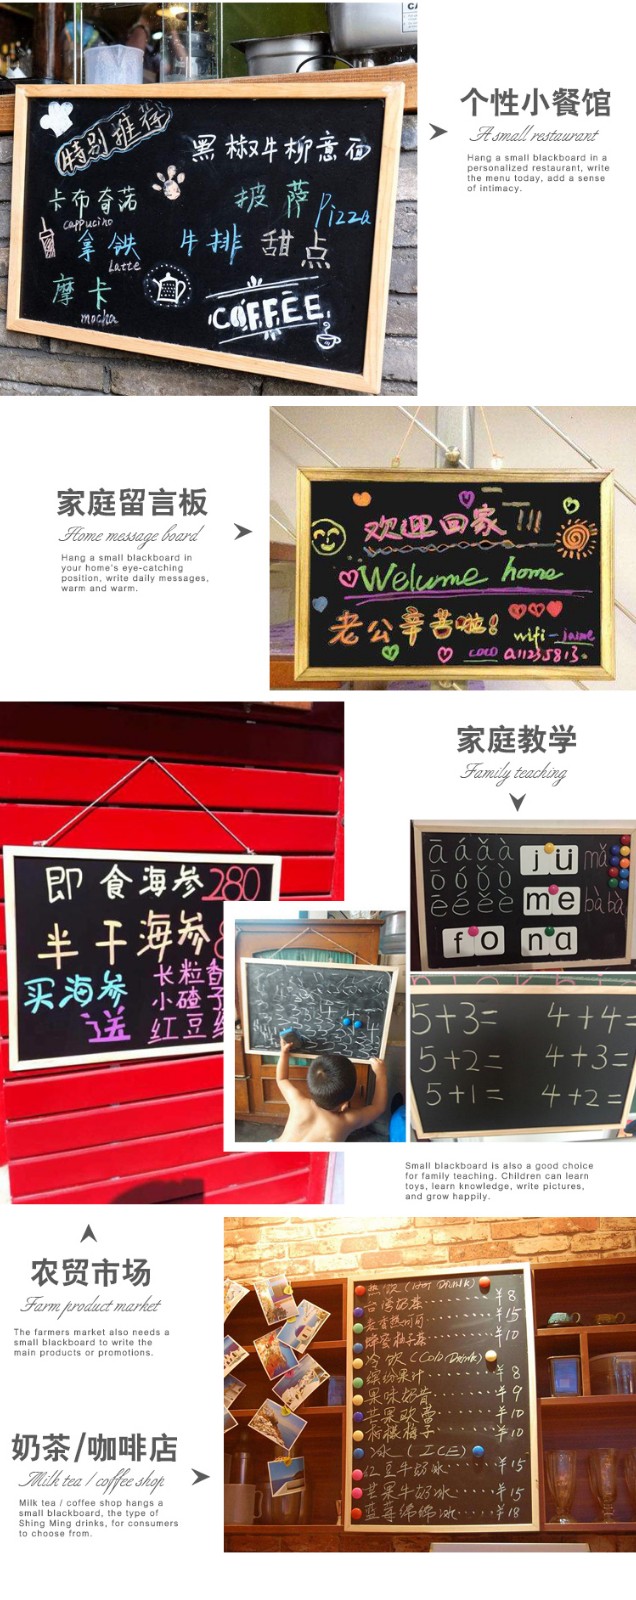 个性小餐馆
A small restaurant
Hang a small blackboard in a
personalized restaurant, write
the menu today, add a sense
of intimacy.
特别推荐
黑椒牛柳意面
卡布奇诺
cappucino
披萨 Pizza
拿铁
Latte
牛排 甜点
摩卡
mocha
COFFEE
家庭留言板
Home message board
Hang a small blackboard in
your home's eye-catching
position, write daily messages,
warm and warm.
欢迎回家!!!
Welcome home
老公辛苦啦!
wifi-jaime
coco a11235813.
家庭教学
Family teaching
ā á ǎ à
jü
mǎ
ō ó ǒ ò
ē é ě è
me
bà bà
fo na
5+3= 4+4=
5+2= 4+3=
5+1= 4+2=
Small blackboard is also a good choice
for family teaching. Children can learn
toys, learn knowledge, write pictures,
and grow happily.
即食海参280
半干海参
买海参
送
长粒香
小碴子
红豆
农贸市场
Farm product market
The farmers market also needs a
small blackboard to write the
main products or promotions.
奶茶/咖啡店
Milk tea / coffee shop
Milk tea / coffee shop hangs a
small blackboard, the type of
Shing Ming drinks, for consumers
to choose from.
热饮(Hot Drink)
台湾奶茶……¥8
¥15
蜂蜜柚子茶……¥10
冷饮(Cold Drink)
缤纷果汁……¥8
果味奶昔……¥9
芒果欧蕾……¥10
¥10
冰(ICE)
红豆牛奶冰……¥15
芒果牛奶冰……¥15
蓝莓绵绵冰……¥18